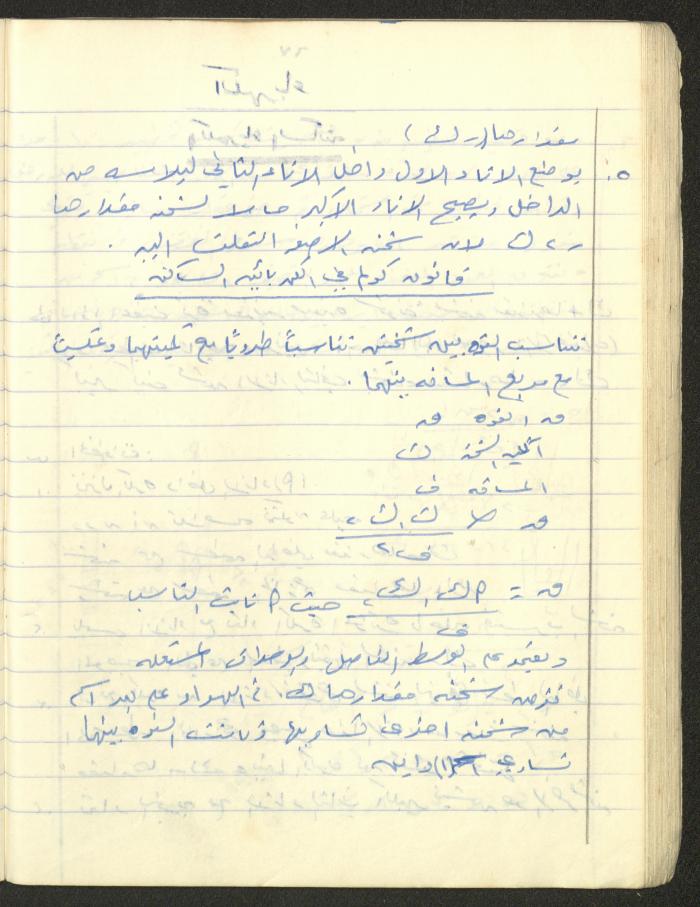 ٧٦
الكهرباء
مقدارها (ر ك)
٥. يوضع الاناء الاول داخل الاناء الثاني ليلامسه من
الداخل ويصبح الاناء الأكبر حاملا لشحنه مقدارها
ر٢ ك لان شحنه الاصغر انتقلت اليه .
قانون كولم في الكهربائيه الساكنه
تتناسب القوه بين شحنتين تناسباً طرديًا مع كميتهما وعكسياً
مع مربع المسافه بينهما .
القوه ق
كمية الشحنه ك
المسافه ف
ق ∝ ك١ ك٢
ف٢
ق = ك١ ك٢ حيث ثابت التناسب
ف٢
ويعتمد على الوسط الفاصل والوحدات المستعمله
نفرض شحنه مقدارها ك في الهواء على بعد ١ سم
من شحنه اخرى تساويها وكانت القوه بينهما
تساوي (١) داين